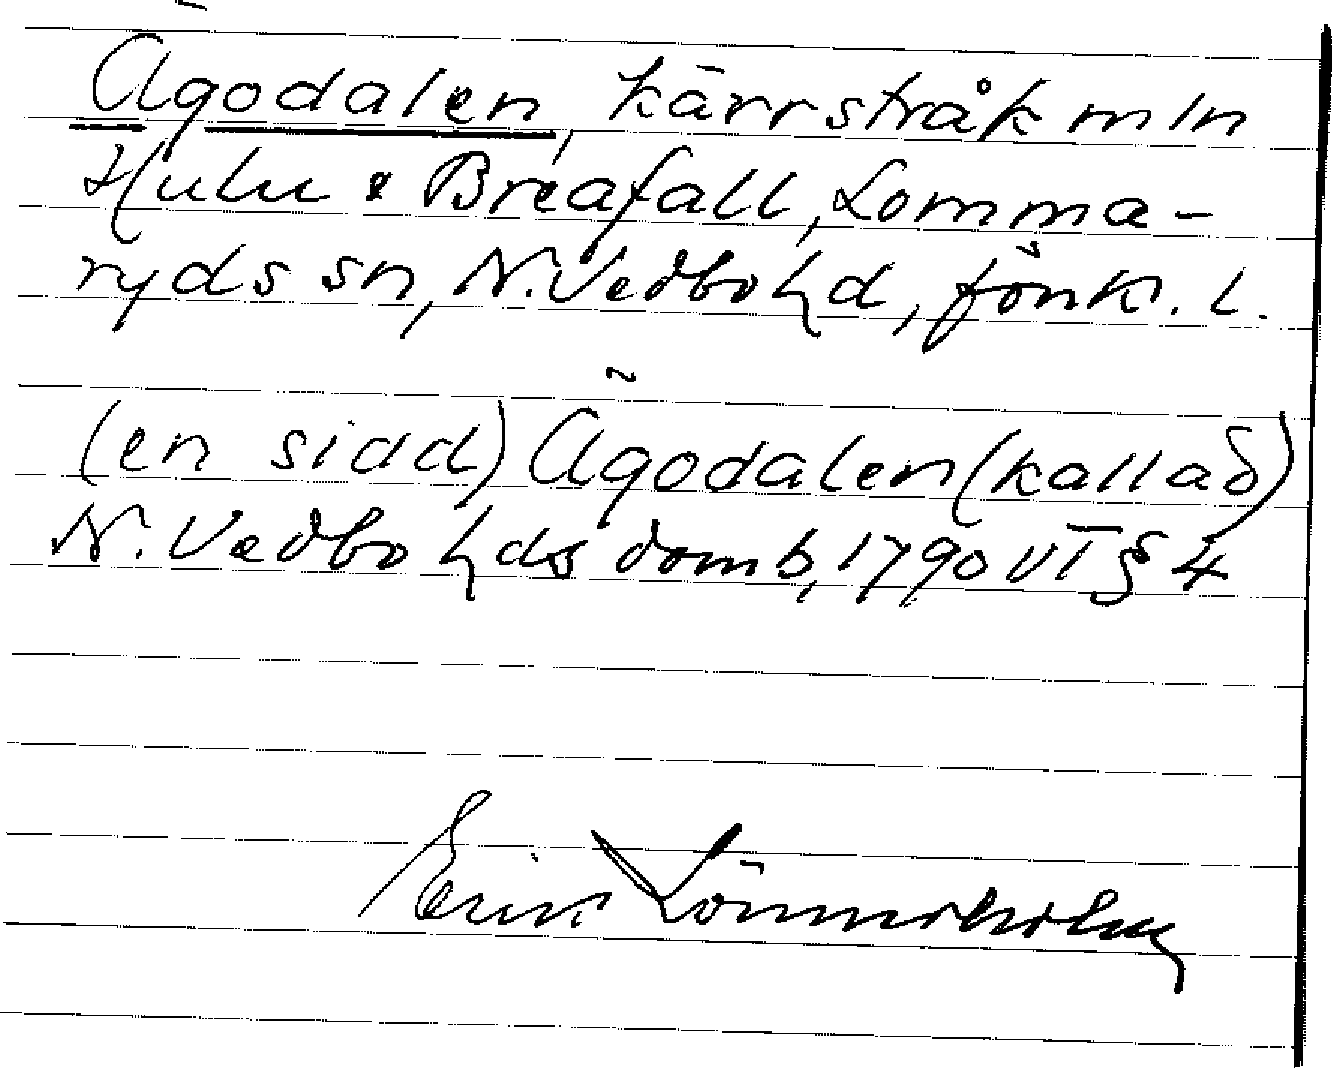 Ägodalen, kärrstråk mln
Hulu & Breafall, Lomma-
ryds sn, N. Vedbo hd, Jönk. l.
(en sidd) Ägodalen (kallad)
N. Vedbo hds domb, 1790 VI § 4
Erik